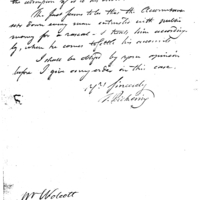 the corruption of it is an
The first seems to be that the Accountant
sets down every man entrusted with public
money for a rascal - & treats him according-
ly, when he comes to settle his accounts.
I shall be obliged by your opinion
before I give any order in this case.
Yrs. Sincerely
T. Pickering
Mr. Wolcott